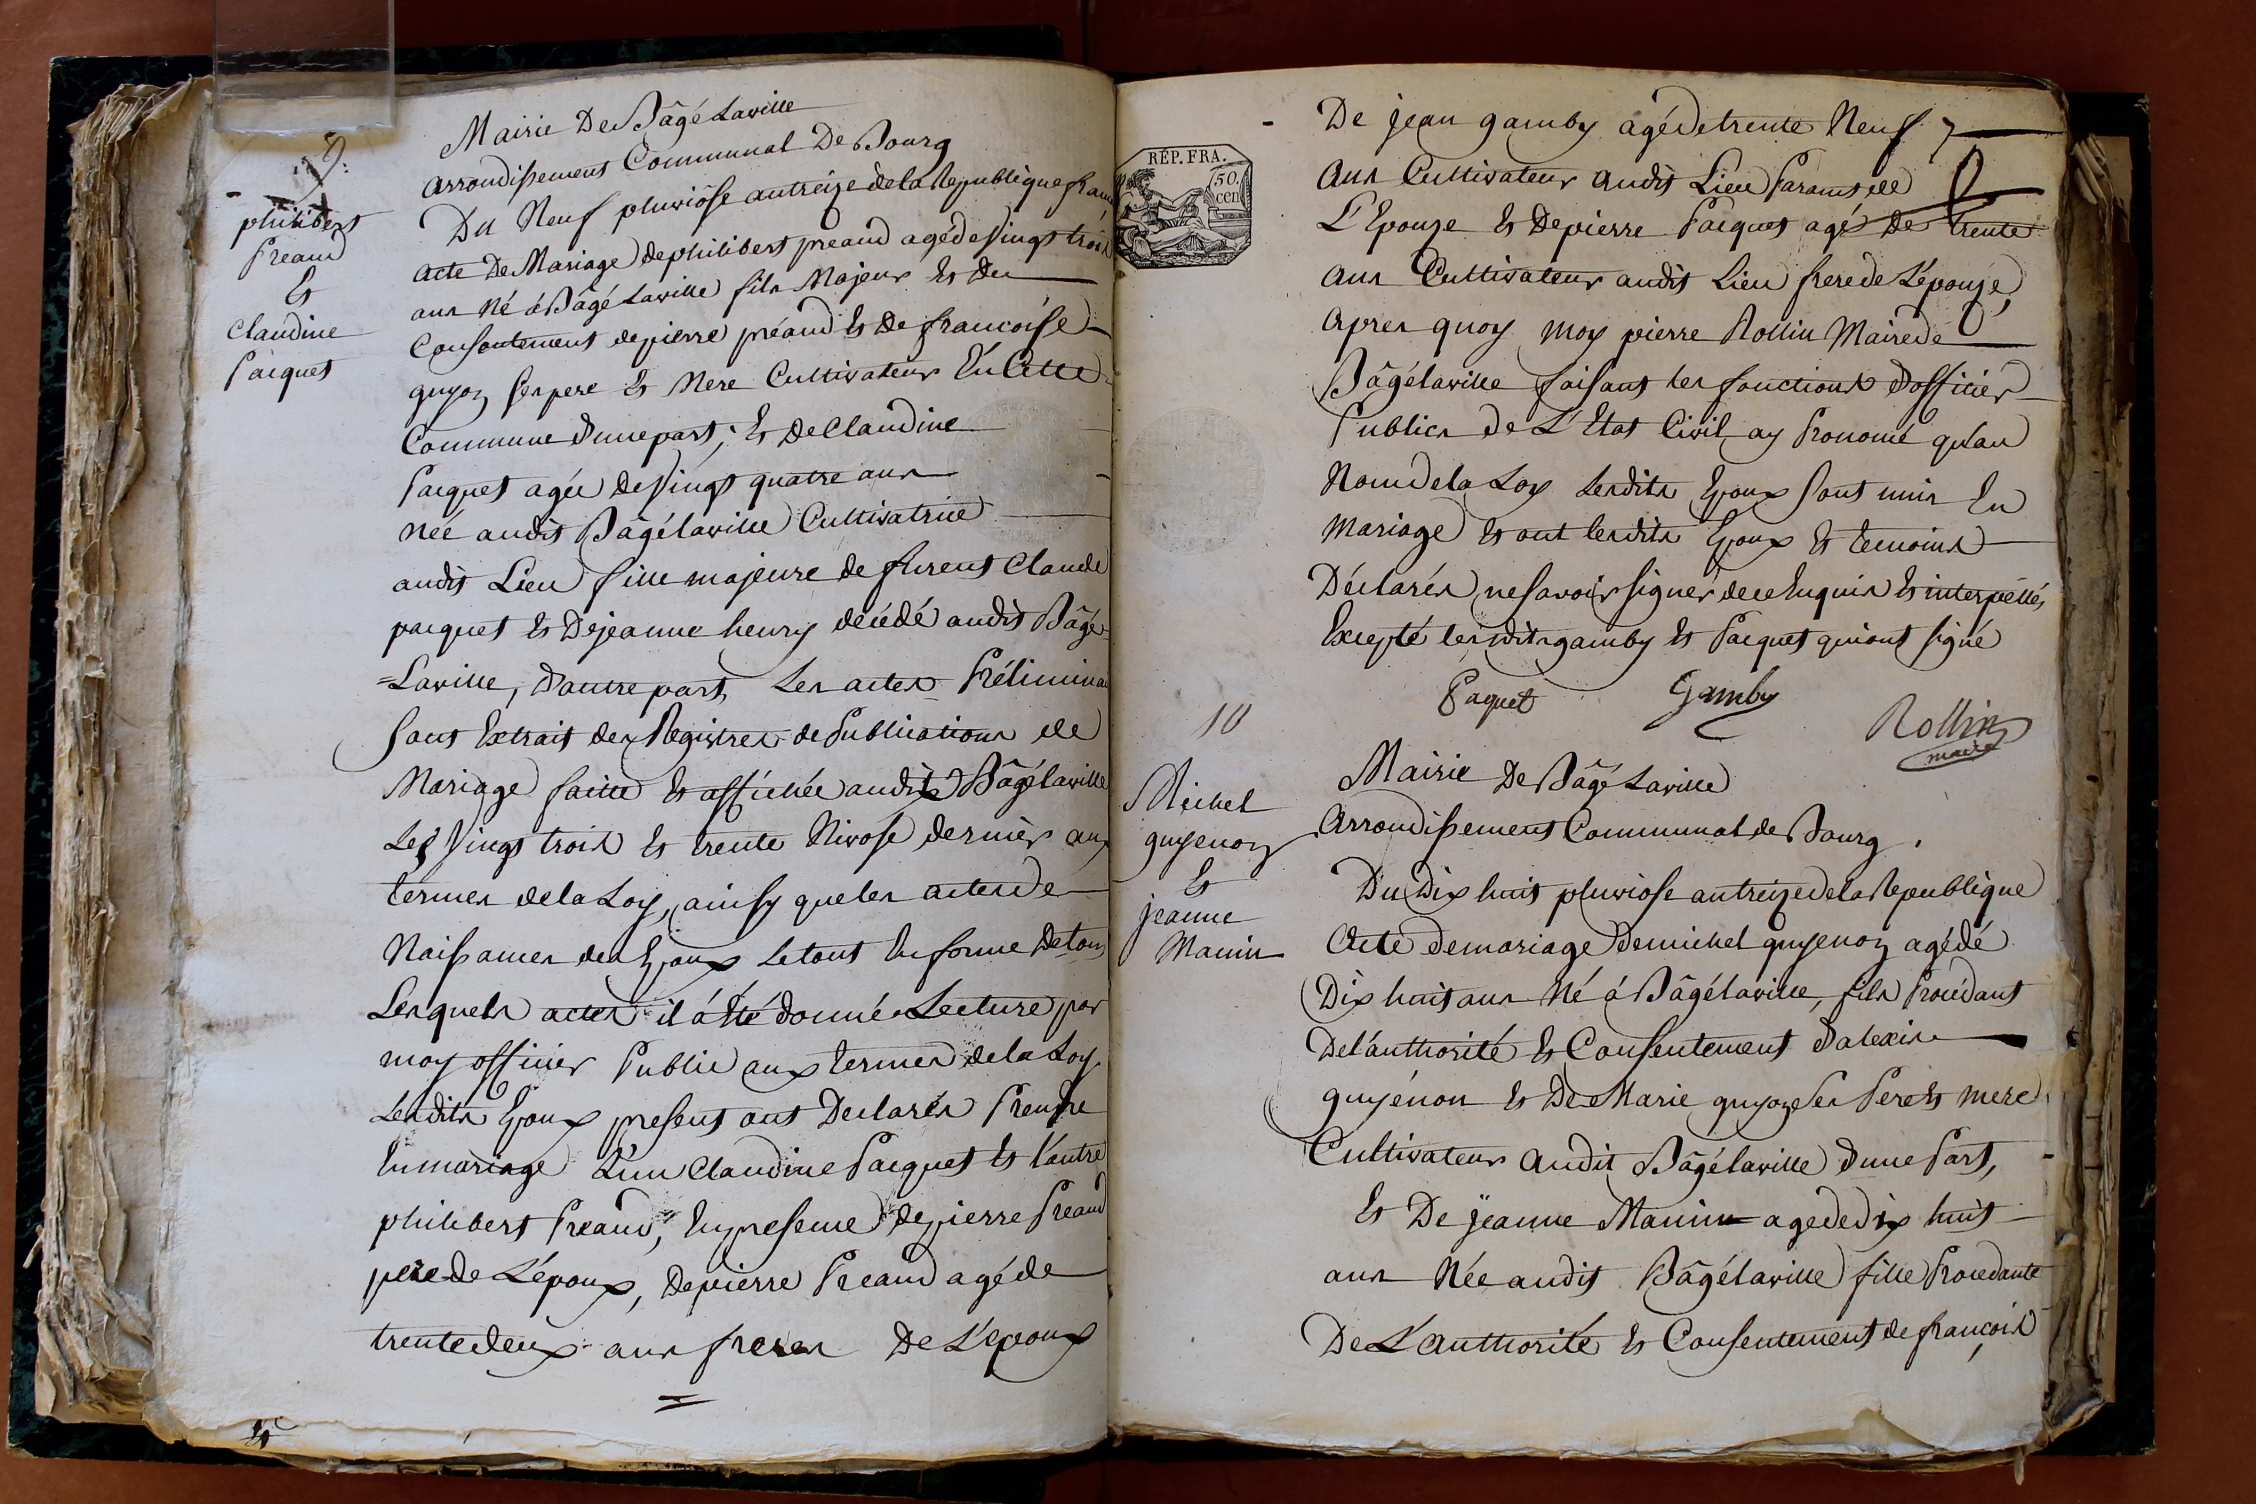 9.
philibert
Preaud
Et
Claudine
Pacquet
Mairie De Bâgé Laville
arrondissement Communal De Bourg
Du Neuf pluviôse an treize de la Republique fran
acte De Mariage de philibert preaud agé de Vingt trois
ans Né á Bâgé Laville fils Majeur Et du
Consentement de pierre préaud Et De francoise
guyon ses pere Et Mere Cultivateurs En Cette
Commune d'une part; Et De Claudine
Pacquet agée de Vingt quatre ans
née audit Bâgélaville Cultivatrice
audit Lieu fille majeure de furent Claude
pacquet Et De jeanne henry décédé audit Bâgé
=Laville, d'autre part, Les actes Préliminai
Sont Extrait des Registres de Publications de
Mariage faitte Et affichée audit Bâgélaville
Les Vingt trois Et trente Nivose dernier aux
termes de la Loy, ainsy que les actes de
Naissances des Epoux Le tout En forme De tous
Lesquels actes il á Eté donné Lecture par
moy officier Public aux termes de la Loy.
Lesdits Epoux present ont Declarés Prendre
En mariage L'un Claudine Pacquet Et l'autre
philibert Preaud, En presence de pierre Preaud
pere de L'époux, De pierre Preaud agé de
trente deux ans freres De L'epoux
=
Et
RÉP. FRA.
50.
cen
De jean gamby agé de trente Neuf
ans Cultivateur audit Lieu Parans de
L'Epouze Et De pierre Pacquet agé de trente
ans Cultivateur audit Lieu frere de L'épouze,
après quoy moy pierre Rollin Maire de
Bâgélaville faisant les fonctions d'officier
Publics de L'Etat Civil, ay Pronomé qu'au
Nom de la Loy Lesdits Epoux Sont unis En
Mariage Et ont lesdits Epoux Et temoins
Déclarés ne savoir signer de ce Enquis Et interpellés,
Excepté lesdits gamby Et Pacquet qui ont signé
Paquet Gamby
Rollin
maire
10
Michel
guyenon
Et
jeanne
Manin
Mairie De Bâgé Laville
Arrondissement Communal de Bourg.
Du Dix huit pluviose an treize de la Republique
Acte de mariage de michel guyenon agé dé
Dix huit ans Né á Bâgélaville, fils Procédant
De l'authorité Et Consentement d'alexis
guyénon Et De Marie guyon Ses Pere Et mere
Cultivateurs audit Bâgélaville d'une Part,
Et De jeanne Manin agé de dix huit
ans Née audit Bâgélaville fille Procedante
De L'authorité Et Consentement de françois